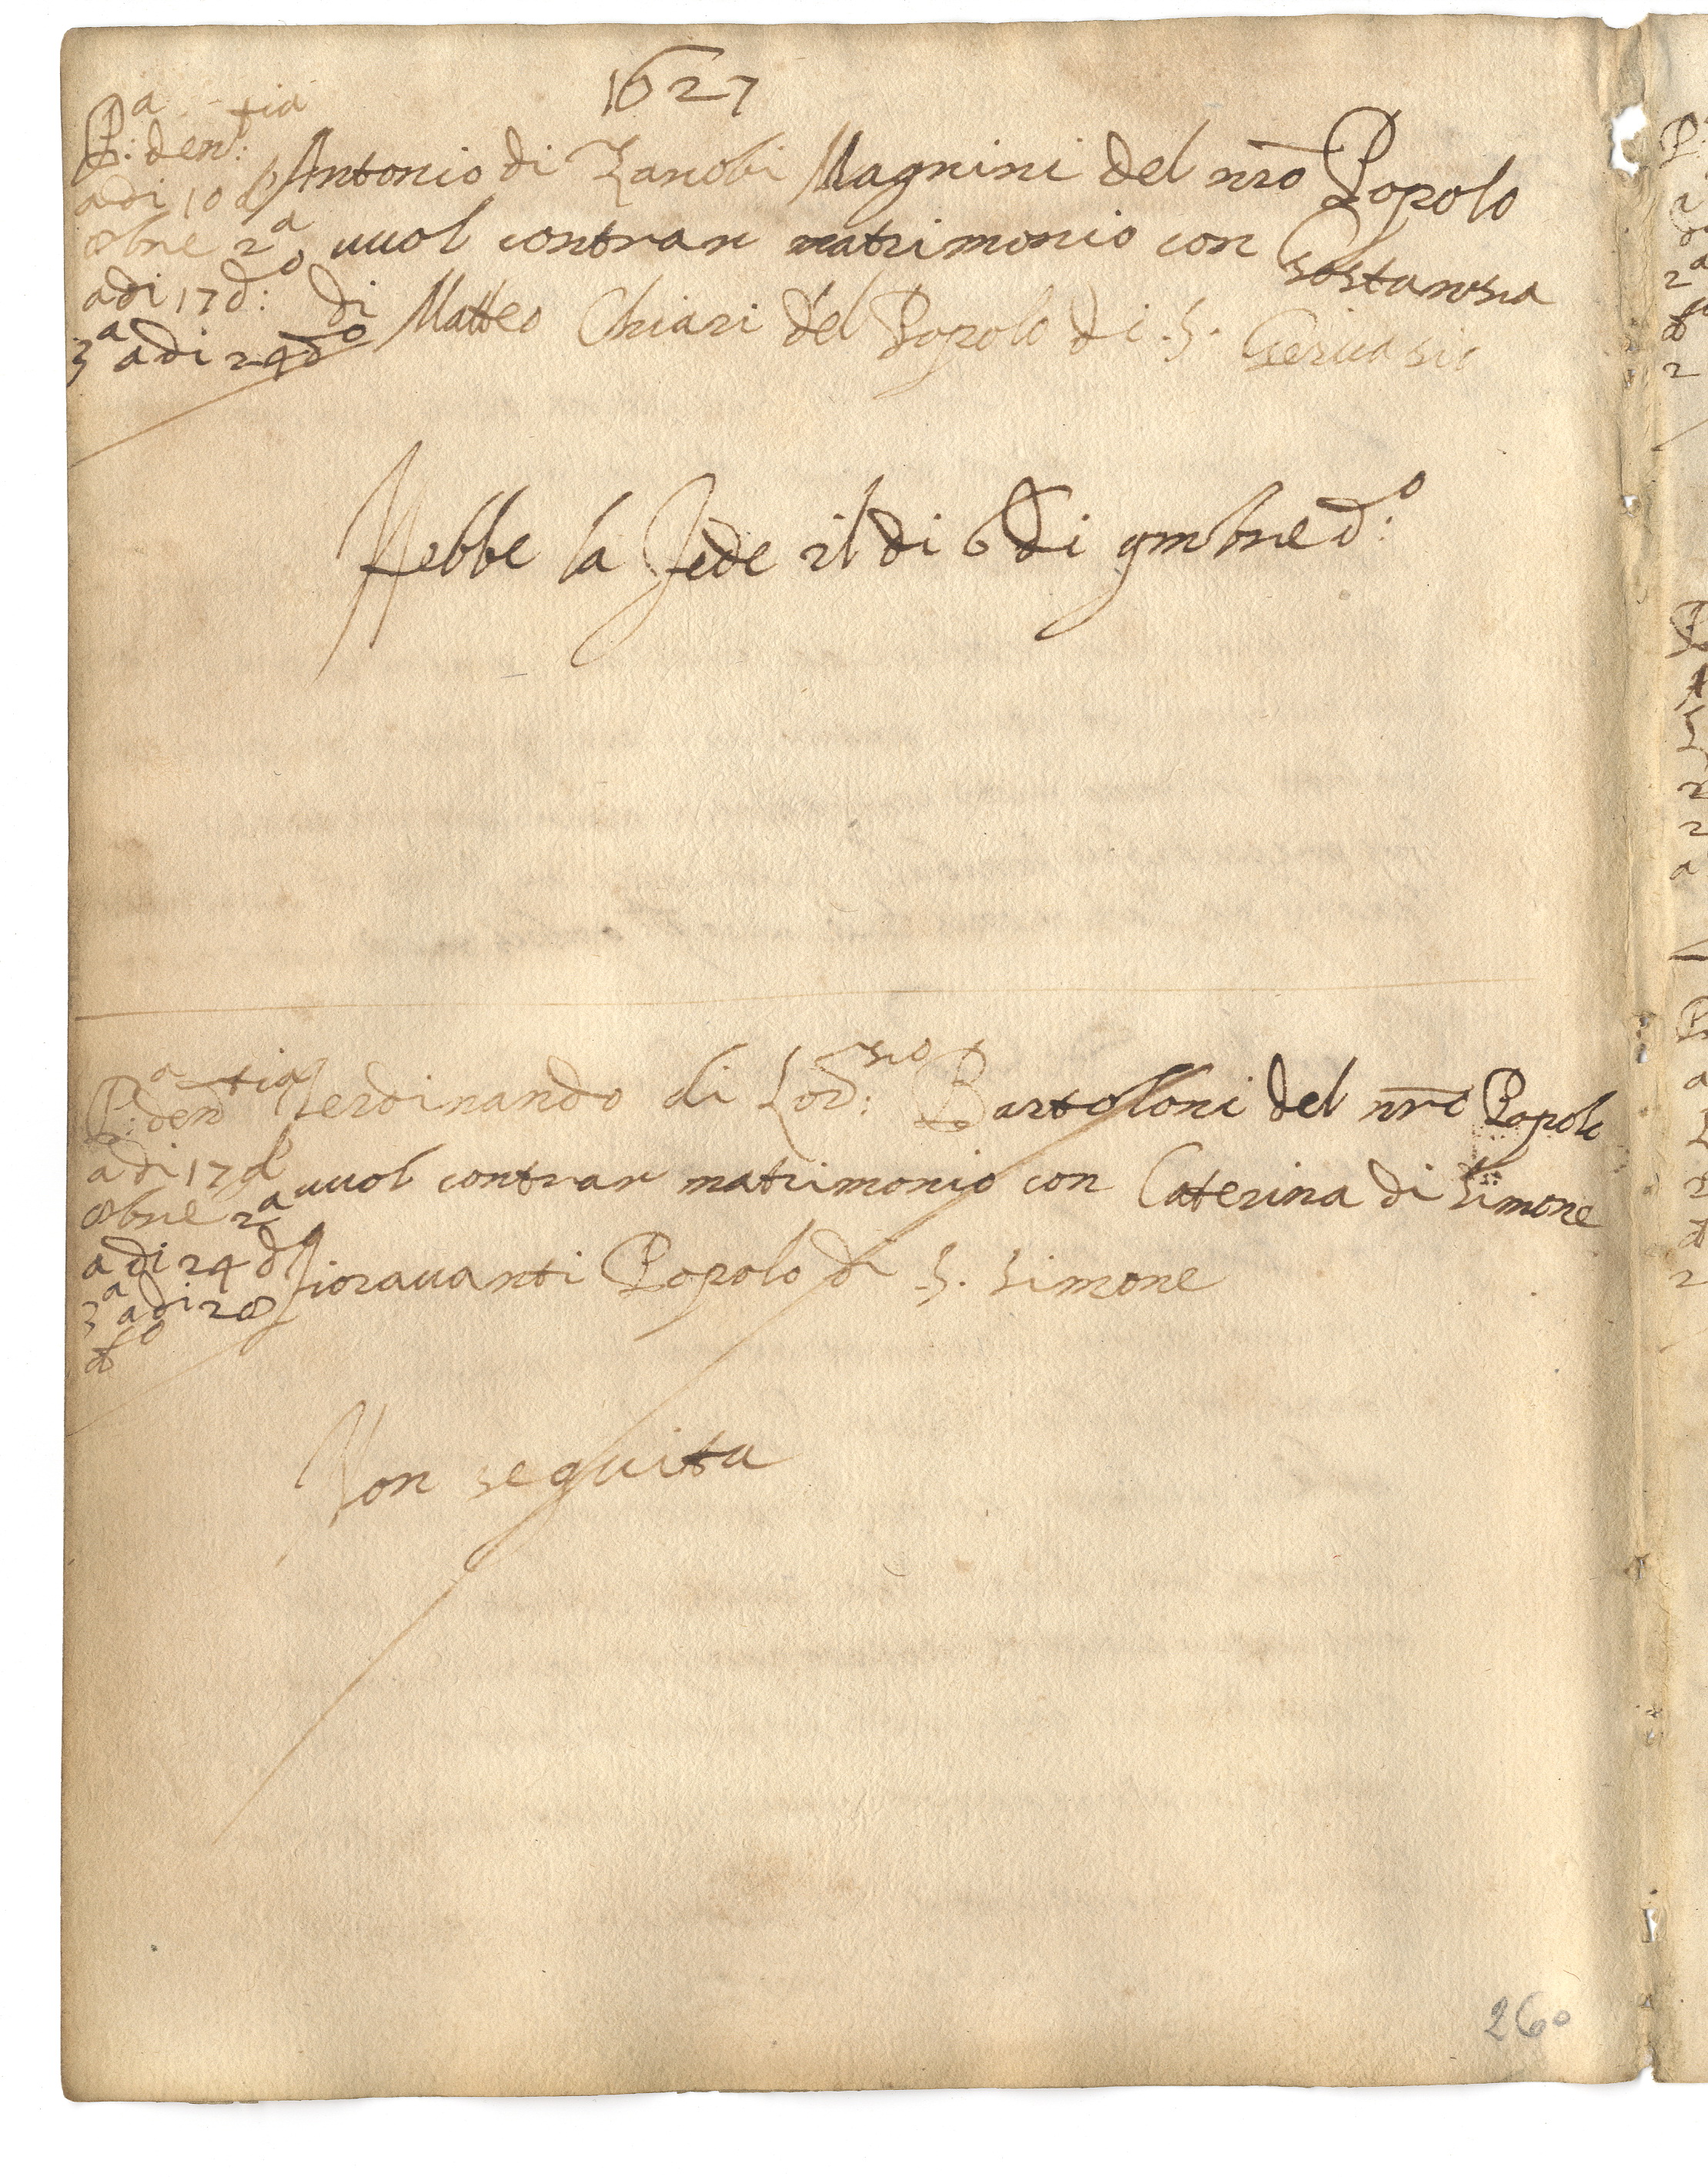 1627
P.a den.tia
adi 10 d
8bre 2a
adi 17 d:o
3a adi 24 do
Antonio di Zanobi Magnini del nro Popolo
vuol contrar matrimonio con Gostansia
di Matteo Chiari del Popolo di S. Gervasio
Hebbe la fede il di 6 di 9mbre d:o
P.a den.tia
adi 17 d
8bre 2a
adi 24 do
3a adi 28
do
Ferdinando di Lor:zo Bartoloni del nro Popolo
vuol contrar matrimonio con Caterina di Simone
Fioravanti Popolo di S. Simone
Non seguita
260